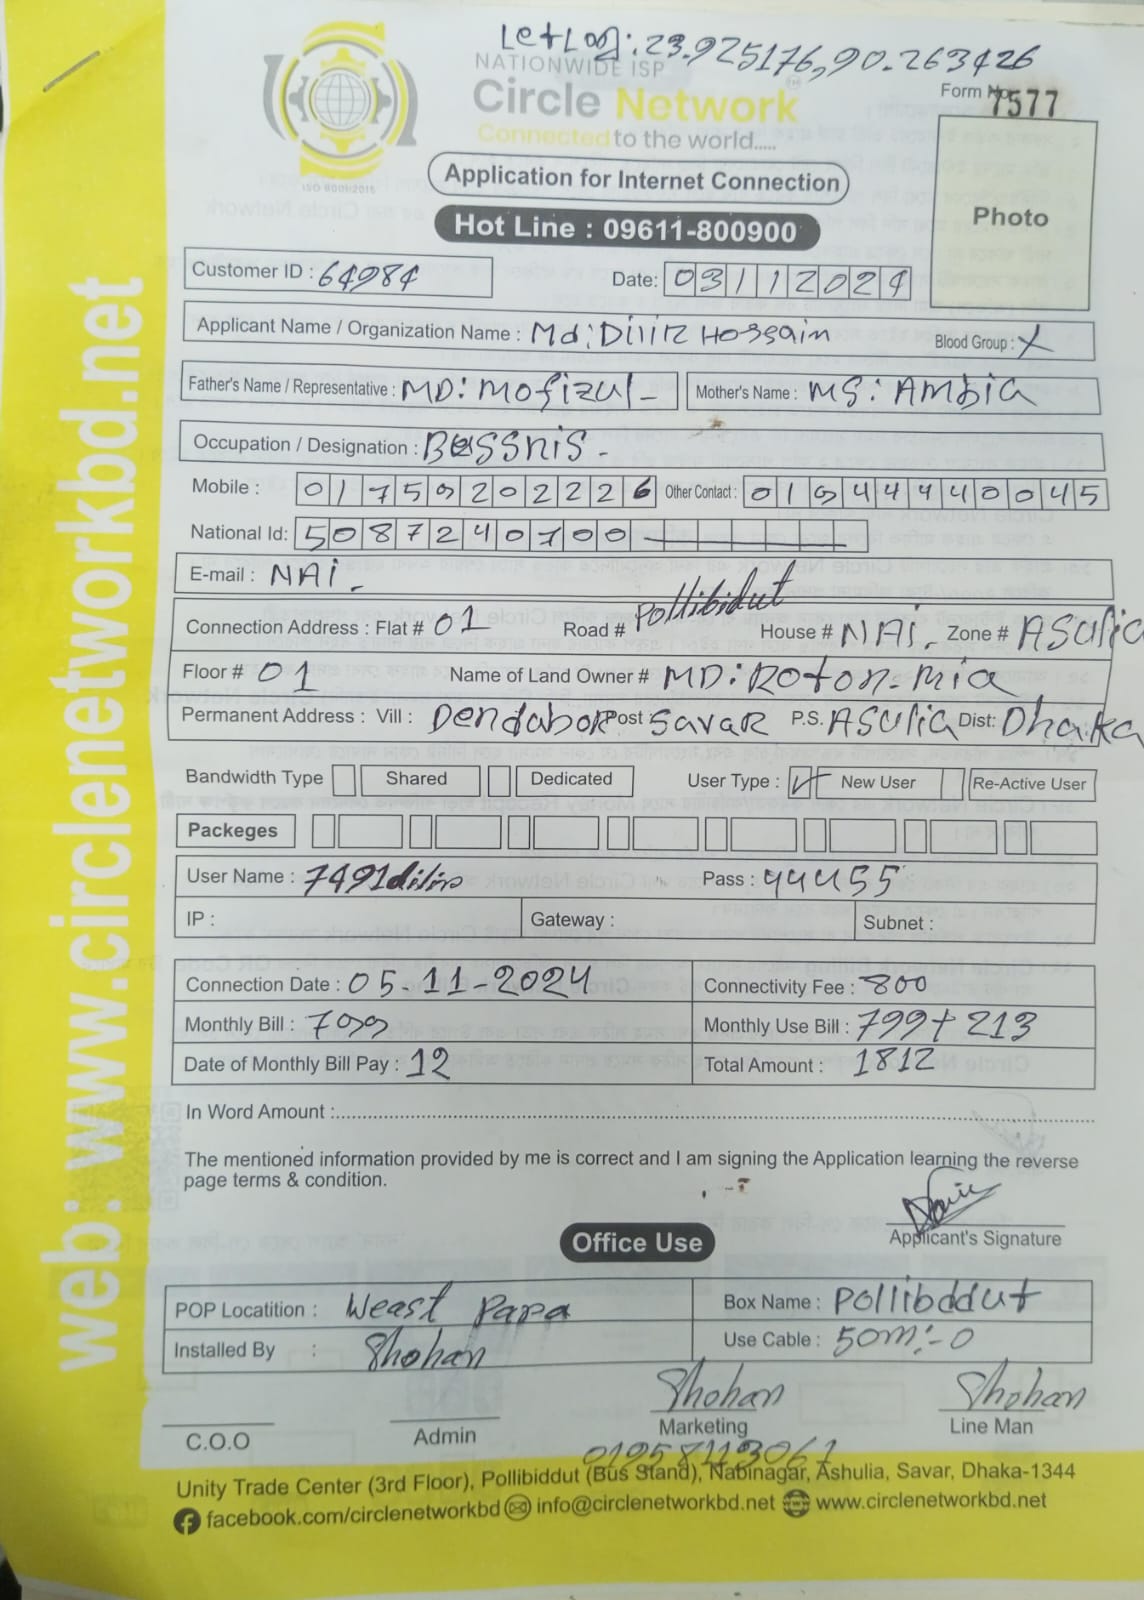 LetLog: 23.925176,90.263426
NATIONWIDE ISP
Circle Network
Connected to the world.....
ISO 9001:2015
Form No. 7577
Application for Internet Connection
Photo
Hot Line : 09611-800900
Customer ID : 64984 Date: 03112024
Applicant Name / Organization Name : Md: Dilir Hossain Blood Group : X
Father's Name / Representative : MD: Mofizul - Mother's Name : MS: AMbia
Occupation / Designation : BUSSNIS -
Mobile : 01759202226 Other Contact : 01944440045
National Id: 5087240700
E-mail : NAi.
Connection Address : Flat # 01 Road # Pollibidut House # NAi. Zone # ASulia
Floor # 01 Name of Land Owner # MD: Roton-Mia
Permanent Address : Vill : Dendabor Post Savar P.S. ASulia Dist: Dhaka
Bandwidth Type Shared Dedicated User Type : New User Re-Active User
Packeges
User Name : 7491dilir Pass : 44455
IP : Gateway : Subnet :
Connection Date : 05-11-2024 Connectivity Fee : 800
Monthly Bill : 799 Monthly Use Bill : 799+213
Date of Monthly Bill Pay : 12 Total Amount : 1812
In Word Amount :
The mentioned information provided by me is correct and I am signing the Application learning the reverse
page terms & condition.
Applicant's Signature
Office Use
POP Locatition : Weast Papa Box Name : Pollibddut
Installed By : Shohan Use Cable : 50m:-0
Shohan Shohan
C.O.O Admin Marketing Line Man
01958413061
Unity Trade Center (3rd Floor), Pollibiddut (Bus Stand), Nabinagar, Ashulia, Savar, Dhaka-1344
facebook.com/circlenetworkbd info@circlenetworkbd.net www.circlenetworkbd.net
web: www.circlenetworkbd.net